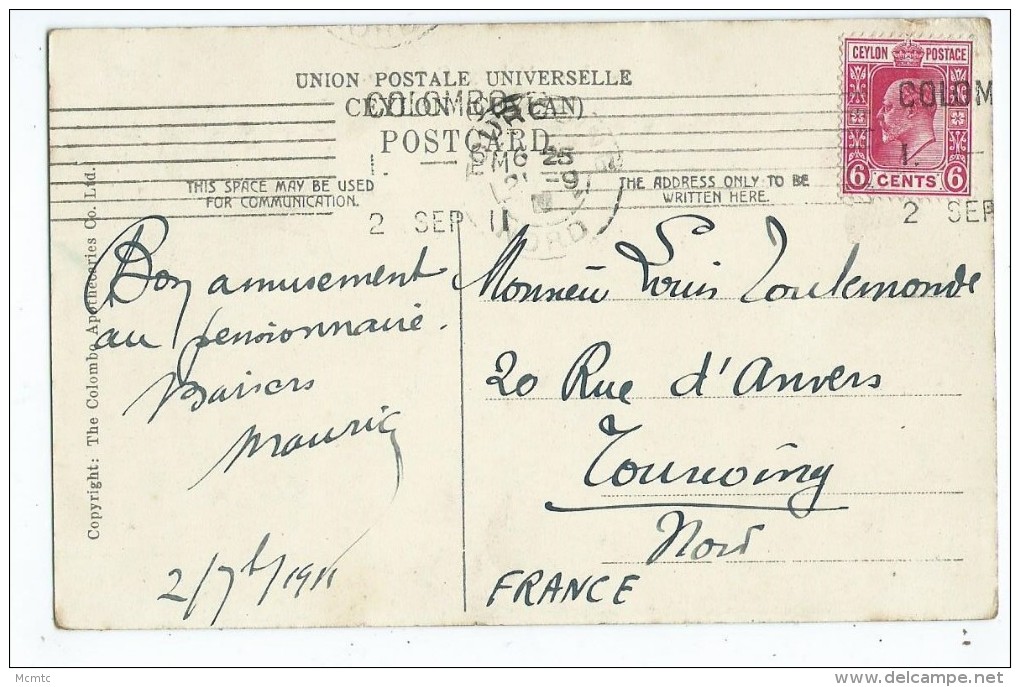 UNION POSTALE UNIVERSELLE
CEYLON (CEYLAN)
POSTCARD
THIS SPACE MAY BE USED
FOR COMMUNICATION.
THE ADDRESS ONLY TO BE
WRITTEN HERE.
CEYLON POSTAGE
6 CENTS 6
COLOMBO
1.
2 SEP 11
COLOM
1.
2 SEP
25
21 - 9
NORD
Bon amusement
au pensionnaire.
Baisers
Maurice
2/7b/1911
Monsieur Louis Toulemonde
20 Rue d'Anvers
Tourcoing
Nord
FRANCE
Copyright: The Colombo Apothecaries Co. Ltd.
Mcmtc
delcampe.net